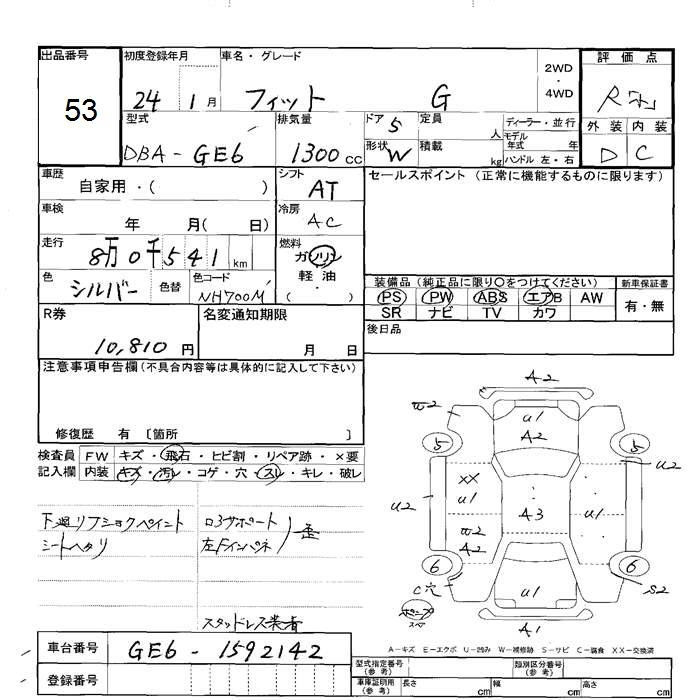 出品番号 初度登録年月 車名・グレード 2WD ・ 4WD 評価点
53
24 1月 フィット G R
型式 排気量 ドア 5 定員 人 ディーラー・並行 外装 内装
DBA-GE6 1300cc 形状 W 積載 kg モデル年式 年 ハンドル 左・右 D C
車歴 自家用・( ) シフト AT セールスポイント(正常に機能するものに限ります)
車検 年 月( 日) 冷房 AC
走行 8万0千541km 燃料 ガソリン 軽油 ( )
色 シルバー 色替 色コード NH700M
装備品(純正品に限り○をつけてください) 新車保証書
PS PW ABS エアB AW 有・無
SR ナビ TV カワ
R券 10,810円 名変通知期限 月 日 後日品
注意事項申告欄(不具合内容等は具体的に記入して下さい)
修復歴 有 〔箇所 〕
検査員記入欄 FW キズ・飛石・ヒビ割・リペア跡・×要
内装 キズ・汚レ・コゲ・穴・スレ・キレ・破レ
下廻リフショクペイント ロアサポート
シートヘタリ 左Fインパネ 歪
スタッドレス装着
A2
W2 U1 A2
5 5
XX U1 U2
U2 A3 U1
W2 A2
6 6
C穴 U1 S2
A1
A-キズ E-エクボ U-凹み W-補修跡 S-サビ C-腐食 XX-交換済
車台番号 GE6-1592142
登録番号
型式指定番号(参考) 類別区分番号(参考)
車庫証明用(参考) 長さ cm 幅 cm 高さ cm